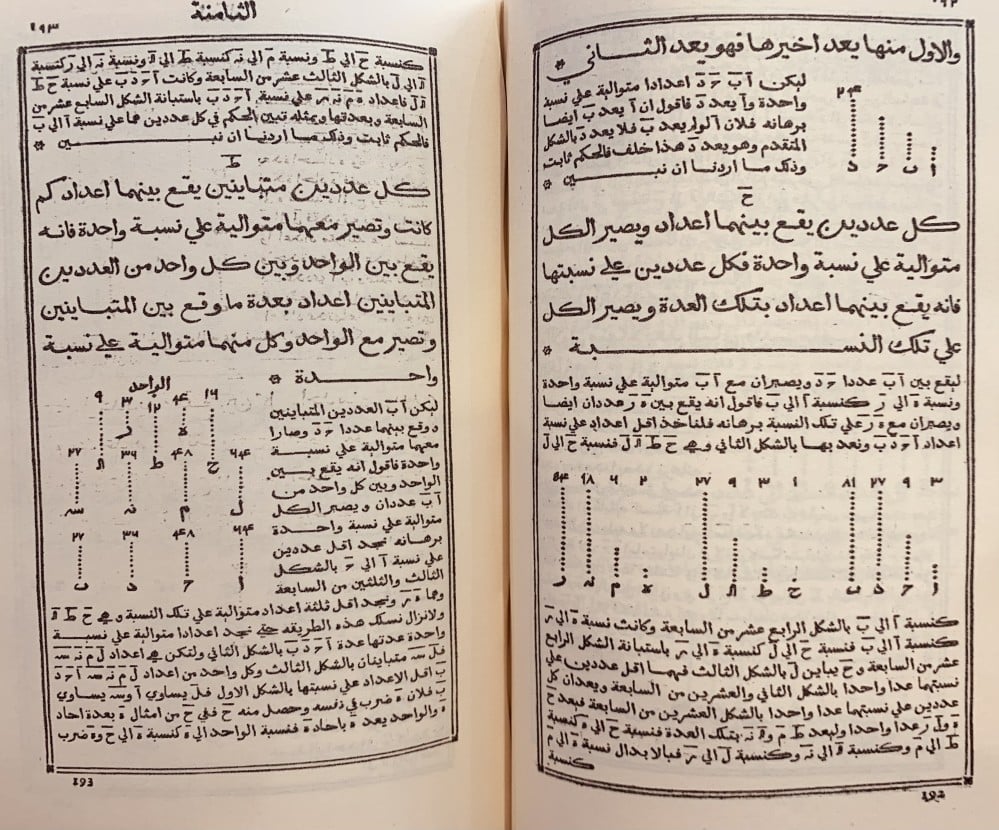 ١٩٢
والاول منها يعد اخيرها فهو يعد الثاني *
ليكن آ ب ح د اعدادا متوالية علي نسبة
واحدة و آ يعد د فاقول ان آ يعد ب ايضا
برهانه فلان آ لو لم يعد ب فلا يعد د بالشكل
المتقدم وهو يعد د هذا خلف فالحكم ثابت
وذلك ما اردنا ان نبين *
٢٤
ا ب ح د
ح
كل عددين يقع بينهما اعداد ويصير الكل
متوالية علي نسبة واحدة فكل عددين علي نسبتها
فانه يقع بينهما اعداد بتلك العدة ويصير الكل
علي تلك النسبة *
ليقع بين آ ب عددا ح د ويصيران مع آ ب متوالية علي نسبة واحدة
ونسبة ه الي ر كنسبة آ الي ب فاقول انه يقع بين ه ر عددان ايضا
ويصيران مع ه ر علي تلك النسبة برهانه فلناخذ اقل اعداد علي نسبة
اعداد آ ح د ب ونعد بها بالشكل الثاني وهي ح ط ك ل فنسبة ح الي ل
٣ ٩ ٢٧ ٨١ ١ ٣ ٩ ٢٧ ٢ ٦ ١٨ ٥٤
ا ح د ب ح ط ك ل ه م نه ر
كنسبة آ الي ب بالشكل الرابع عشر من السابعة وكانت نسبة ه الي ر
كنسبة آ الي ب فنسبة ح الي ل كنسبة ه الي ر باستبانة الشكل الرابع
عشر من السابعة و ح يباين ل بالشكل الثالث فهما اقل عددين علي
نسبتهما عدا واحدا بالشكل الثاني والعشرين من السابعة ويعدان كل
عددين علي نسبتهما عدا واحدا بالشكل العشرين من السابعة فيعد ح
ه و ل ر عدا واحدا وليعد ط م و ك نه بتلك العدة فنسبة ح الي ه كنسبة
ط الي م وكنسبة ك الي نه وكنسبة ل الي ر فبالابدال نسبة ه الي م
كنسبة
192
١٩٣
الثامنة
كنسبة ح الي ط ونسبة م الي نه كنسبة ط الي ك ونسبة نه الي ر كنسبة
ك الي ل بالشكل الثالث عشر من السابعة وكانت آ ح د ب علي نسبة ح ط
ك ل فاعداد ه م نه ر علي نسبة آ ح د ب باستبانة الشكل السابع عشر من
السابعة وبعدتها وبمثله تبين الحكم في كل عددين هما علي نسبة آ الي ب
فالحكم ثابت وذلك ما اردنا ان نبين *
ط
كل عددين متباينين يقع بينهما اعداد كم
كانت وتصير معهما متوالية علي نسبة واحدة فانه
يقع بين الواحد وبين كل واحد من العددين
المتباينين اعداد بعدة ما وقع بين المتباينين
وتصير مع الواحد وكل منهما متوالية علي نسبة
واحدة *
ليكن آ ب العددين المتباينين
و وقع بينهما عددا ح د وصارا
معهما متوالية علي نسبة
واحدة فاقول انه يقع بين
الواحد وبين كل واحد من
آ ب عددان ويصير الكل
متوالية علي نسبة واحدة
برهانه نجد اقل عددين
علي نسبة آ الي ح بالشكل
الثالث والثلثين من السابعة
الواحد
١٦ ٤ ١٢ ٣ ٩
ح ه ط ر ك
٦٤ ٤٨ ٣٦ ٢٧
ل م نه سه
٦٤ ٤٨ ٣٦ ٢٧
ا ح د ب
وهما ه ر ونجد اقل ثلثة اعداد متوالية علي تلك النسبة وهي ح ط ك
ولانزال نسلك هذه الطريقه حتي نجد اعدادا متوالية علي نسبة
واحدة عدتها عدة آ ح د ب بالشكل الثاني ولتكن هي اعداد ل م نه سه
فل سه متباينان بالشكل الثالث وكل واحد من اعداد ل م نه سه آ ح د
ب اقل الاعداد علي نسبتها بالشكل الاول فل يساوي آ وسه يساوي
ب فلان ه ضرب في نفسه وحصل منه ح ففي ح من امثال ه بعدة احاد
ه والواحد يعد ه باحاد ه فنسبة الواحد الي ه كنسبة ه الي ح و ه ضرب
193